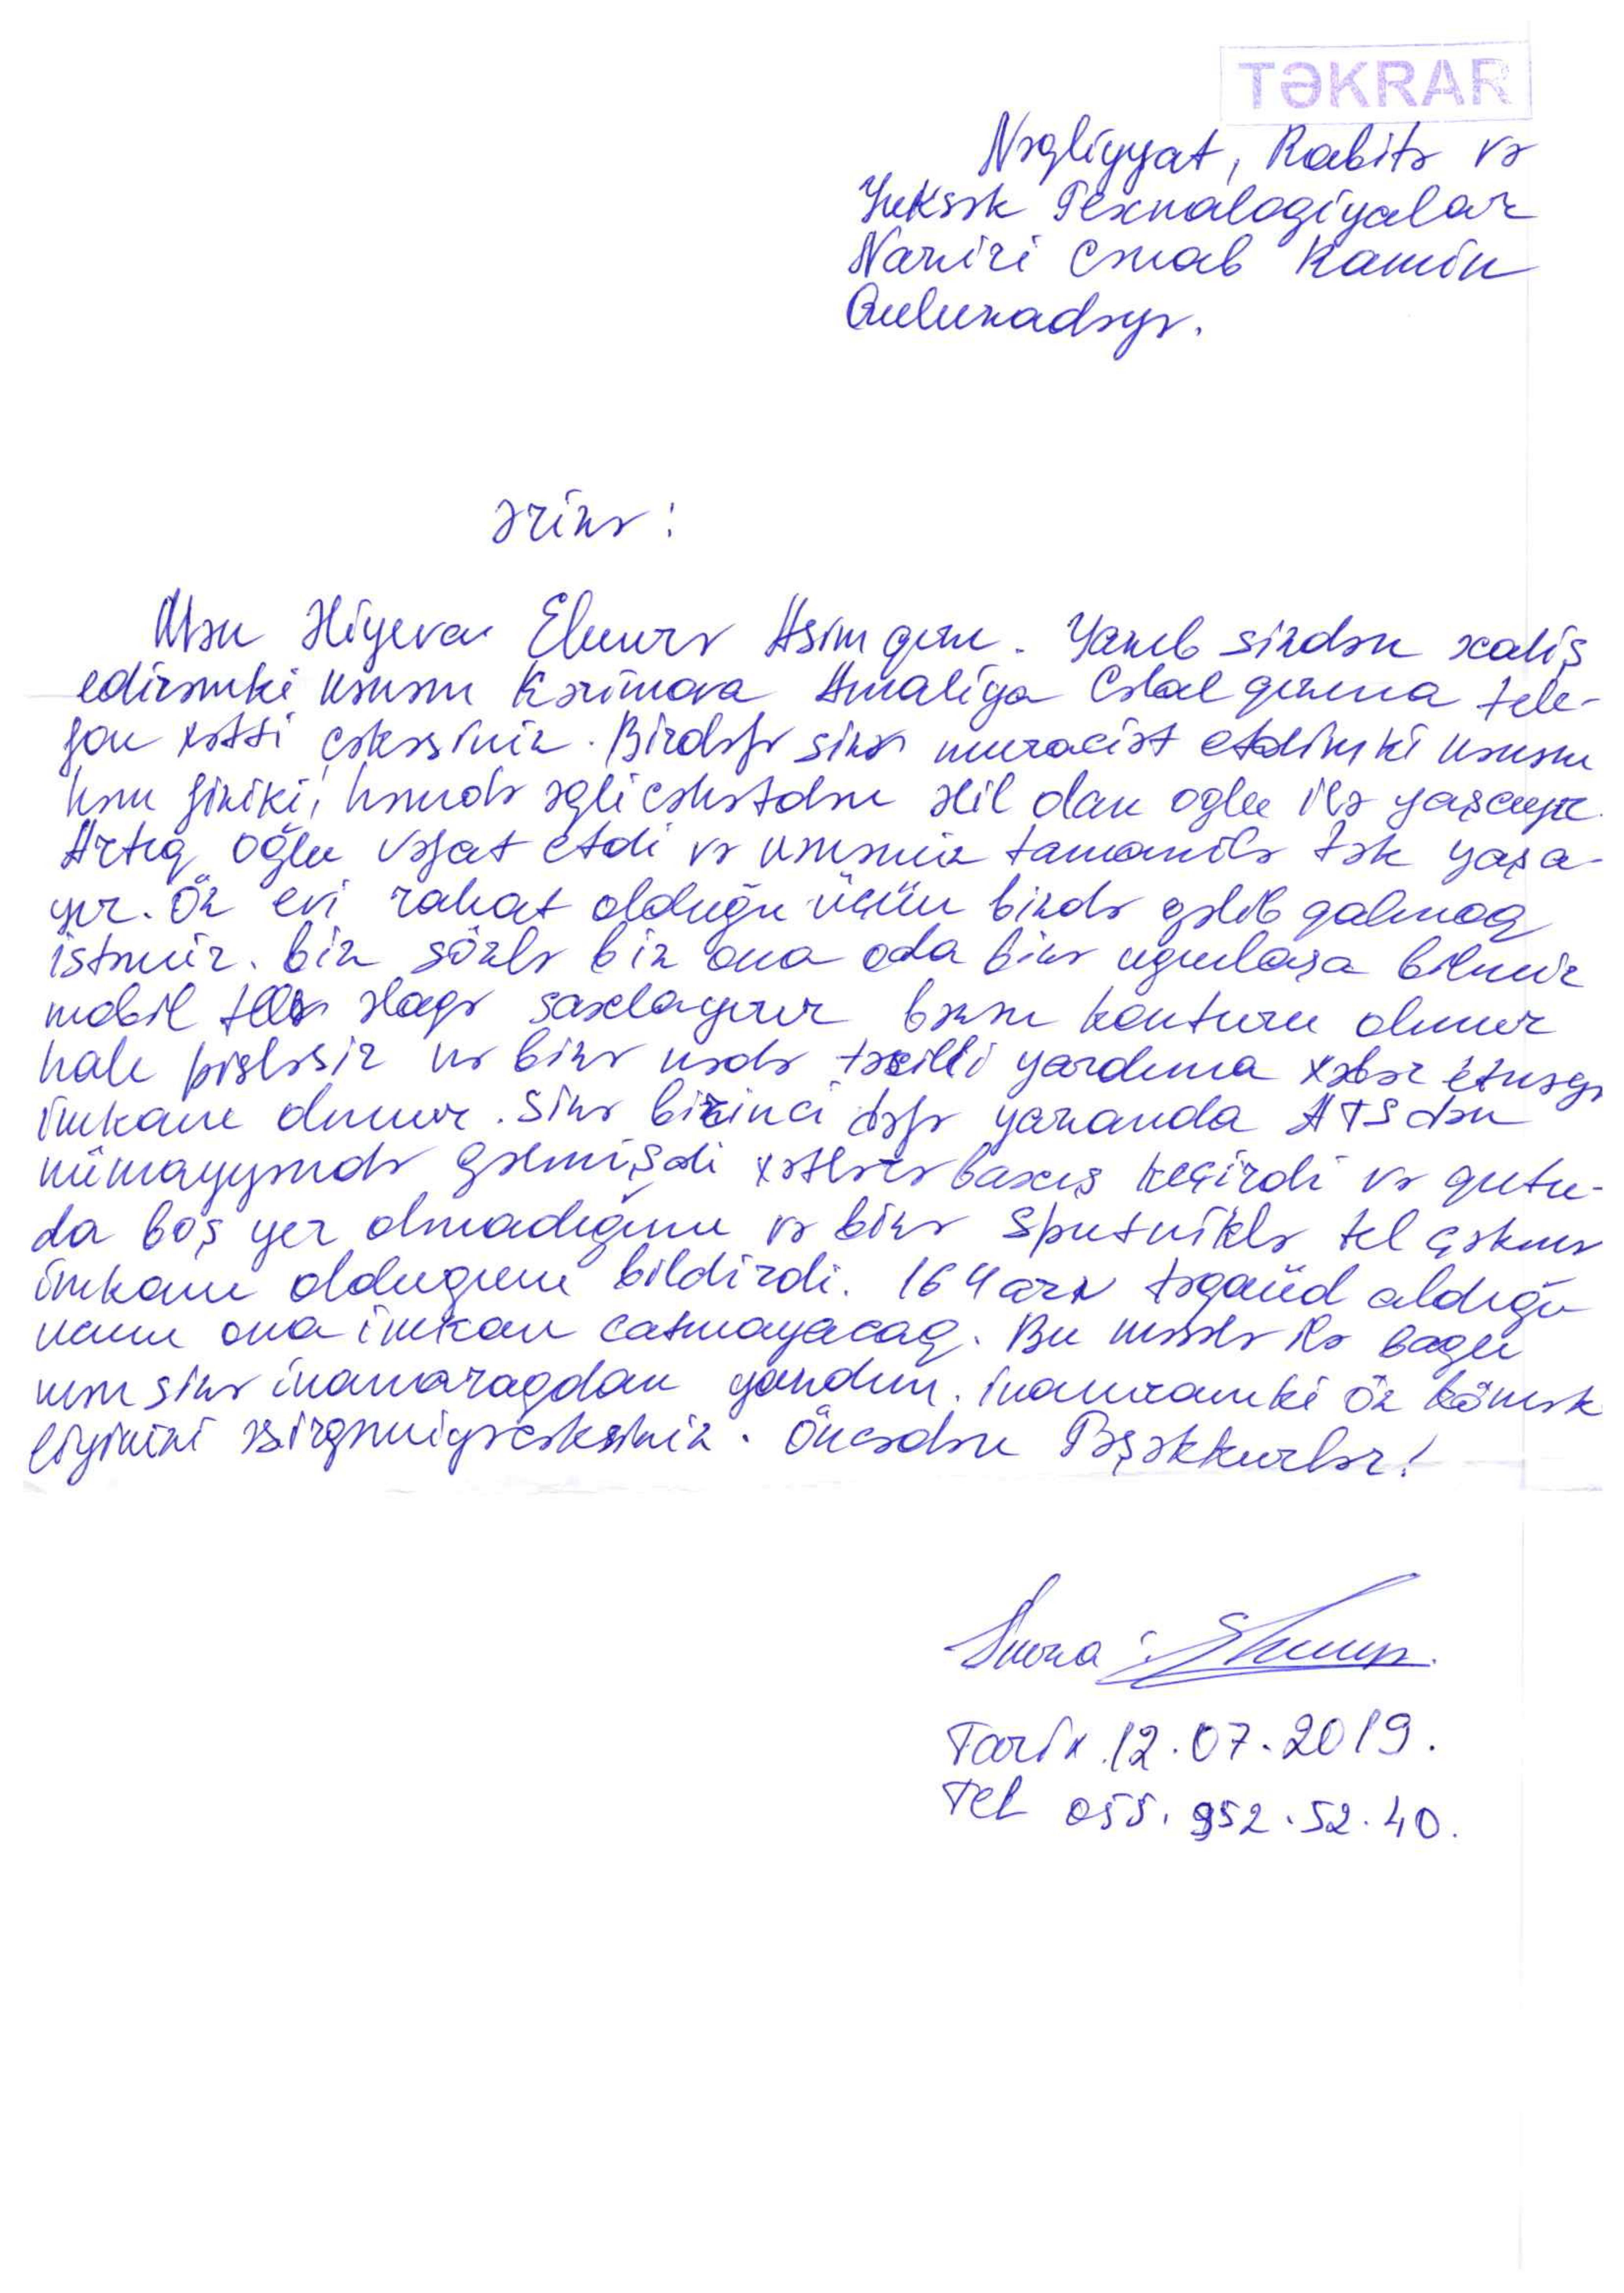 TƏKRAR
Nəqliyyat, Rabitə və
Yuksək Texnalogiyalar
Naziri Cənab Ramin
Quluzadəyə.
Ərizə:
Mən Əliyeva Elmirə Asim qızı. Yazıb sizdən xaliş
edirəmki nənəm Kərimova Amaliya Cəlal qızına tele-
fon xətti çəkəsiniz. Birdəfə sizə muraciət etdimki nənəm
həm fiziki, həmdə əqli cəhətdən əlil olan oglu ilə yaşayır.
Artıq oğlu vəfat etdi və nənəmiz tamamilə tək yaşa-
yır. Öz evi rahat olduğu üçün bizdə gəlib qalmaq
istəmir. biz sözlə biz ona oda bizə uyunlaşa bilmir
mobil əlaqə saxlayırır bəzən konturu olmur
halı pisləsir nə bizə nədə təcili yardıma xəbər etməyə
imkanı olmur. Sizə birinci dəfə yazanda ATSdən
nümayyəndə gəlmişdi xətlərə baxış keçirdi və qutu-
da boş yer olmadığını və bizə Sputniklə tel çəkmə
imkanı oldugunu bildirdi. 164 azn təqaüd aldığı
ona imkan catmayacaq. Bu məsələ ilə baglı
mən sizə inamaraqdan yazdım. inanıramki öz kömək
liyinizi əsirgəmiyəcəksiniz. Öncədən Təşəkkurlər!
İmza:
Tarix 12.07.2019.
Tel 055. 952.52.40.